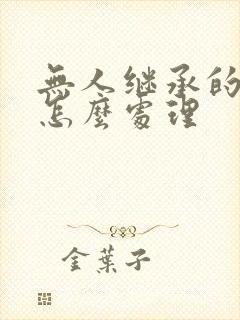 無人继承的
怎麼處理
金葉子